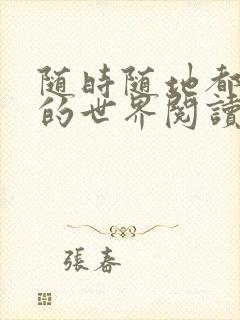 随時随地都
的世界閱讀
張春